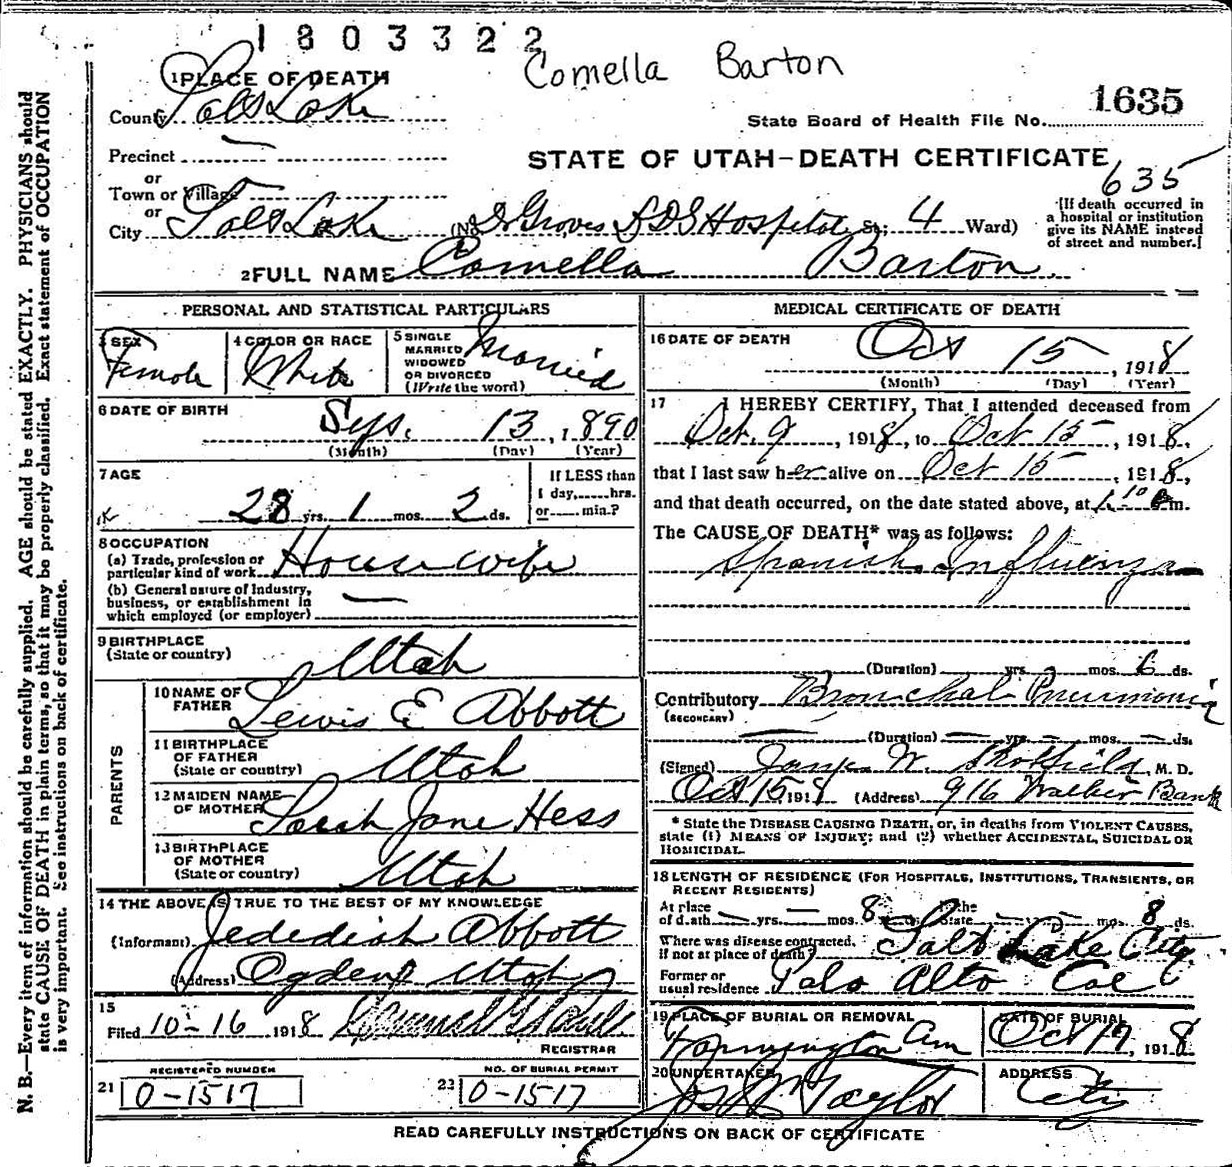 1803322
Comella Barton
1 PLACE OF DEATH
County Salt Lake
1635
State Board of Health File No.
Precinct
or
STATE OF UTAH-DEATH CERTIFICATE
635
Town or Village
or
City Salt Lake (No. Groves LDS Hospital St; 4 Ward)
[If death occurred in a hospital or institution give its NAME instead of street and number.]
2 FULL NAME Comella Barton
PERSONAL AND STATISTICAL PARTICULARS
3 SEX
Female
4 COLOR OR RACE
White
5 SINGLE
MARRIED
WIDOWED
OR DIVORCED
(Write the word)
Married
6 DATE OF BIRTH
13, 1890
(Month) (Day) (Year)
7 AGE
28 yrs. 1 mos. 2 ds.
If LESS than
1 day,......hrs.
or......min.?
8 OCCUPATION
(a) Trade, profession or
particular kind of work House wife
(b) General nature of Industry,
business, or establishment in
which employed (or employer)
9 BIRTHPLACE
(State or country) Utah
PARENTS
10 NAME OF
FATHER Lewis E Abbott
11 BIRTHPLACE
OF FATHER
(State or country) Utah
12 MAIDEN NAME
OF MOTHER Sarah Jane Hess
13 BIRTHPLACE
OF MOTHER
(State or country) Utah
14 THE ABOVE IS TRUE TO THE BEST OF MY KNOWLEDGE
(Informant) Jedediah Abbott
(Address) Ogden Utah
15
Filed 10-16 1918
REGISTRAR
REGISTERED NUMBER
21 0-1517
NO. OF BURIAL PERMIT
22 0-1517
MEDICAL CERTIFICATE OF DEATH
16 DATE OF DEATH
Oct 15, 1918
(Month) (Day) (Year)
17 I HEREBY CERTIFY, That I attended deceased from
Oct. 9, 1918, to Oct 15, 1918,
that I last saw her alive on Oct 15, 1918,
and that death occurred, on the date stated above, at 1 10 m.
The CAUSE OF DEATH* was as follows:
Spanish Influenza
(Duration) yrs. mos. 6 ds.
Contributory Bronchal Pneumonia
(SECONDARY)
(Duration) yrs. mos. ds.
(Signed) W. M. D.
Oct 15 1918 (Address) 916 Walker Bank
* State the DISEASE CAUSING DEATH, or, in deaths from VIOLENT CAUSES,
state (1) MEANS OF INJURY; and (2) whether ACCIDENTAL, SUICIDAL OR
HOMICIDAL.
18 LENGTH OF RESIDENCE (FOR HOSPITALS, INSTITUTIONS, TRANSIENTS, OR
RECENT RESIDENTS)
At place In the
of death yrs. mos. 8 State mos. 8 ds.
Where was disease contracted,
if not at place of death? Salt Lake City
Former or
usual residence Palo Alto Cal
19 PLACE OF BURIAL OR REMOVAL
Farmington
DATE OF BURIAL
Oct 17, 1918
20 UNDERTAKER
Jos Wm Taylor
ADDRESS
City
READ CAREFULLY INSTRUCTIONS ON BACK OF CERTIFICATE
N. B.—Every item of information should be carefully supplied. AGE should be stated EXACTLY. PHYSICIANS should
state CAUSE OF DEATH in plain terms, so that it may be properly classified. Exact statement of OCCUPATION
is very important. See instructions on back of certificate.